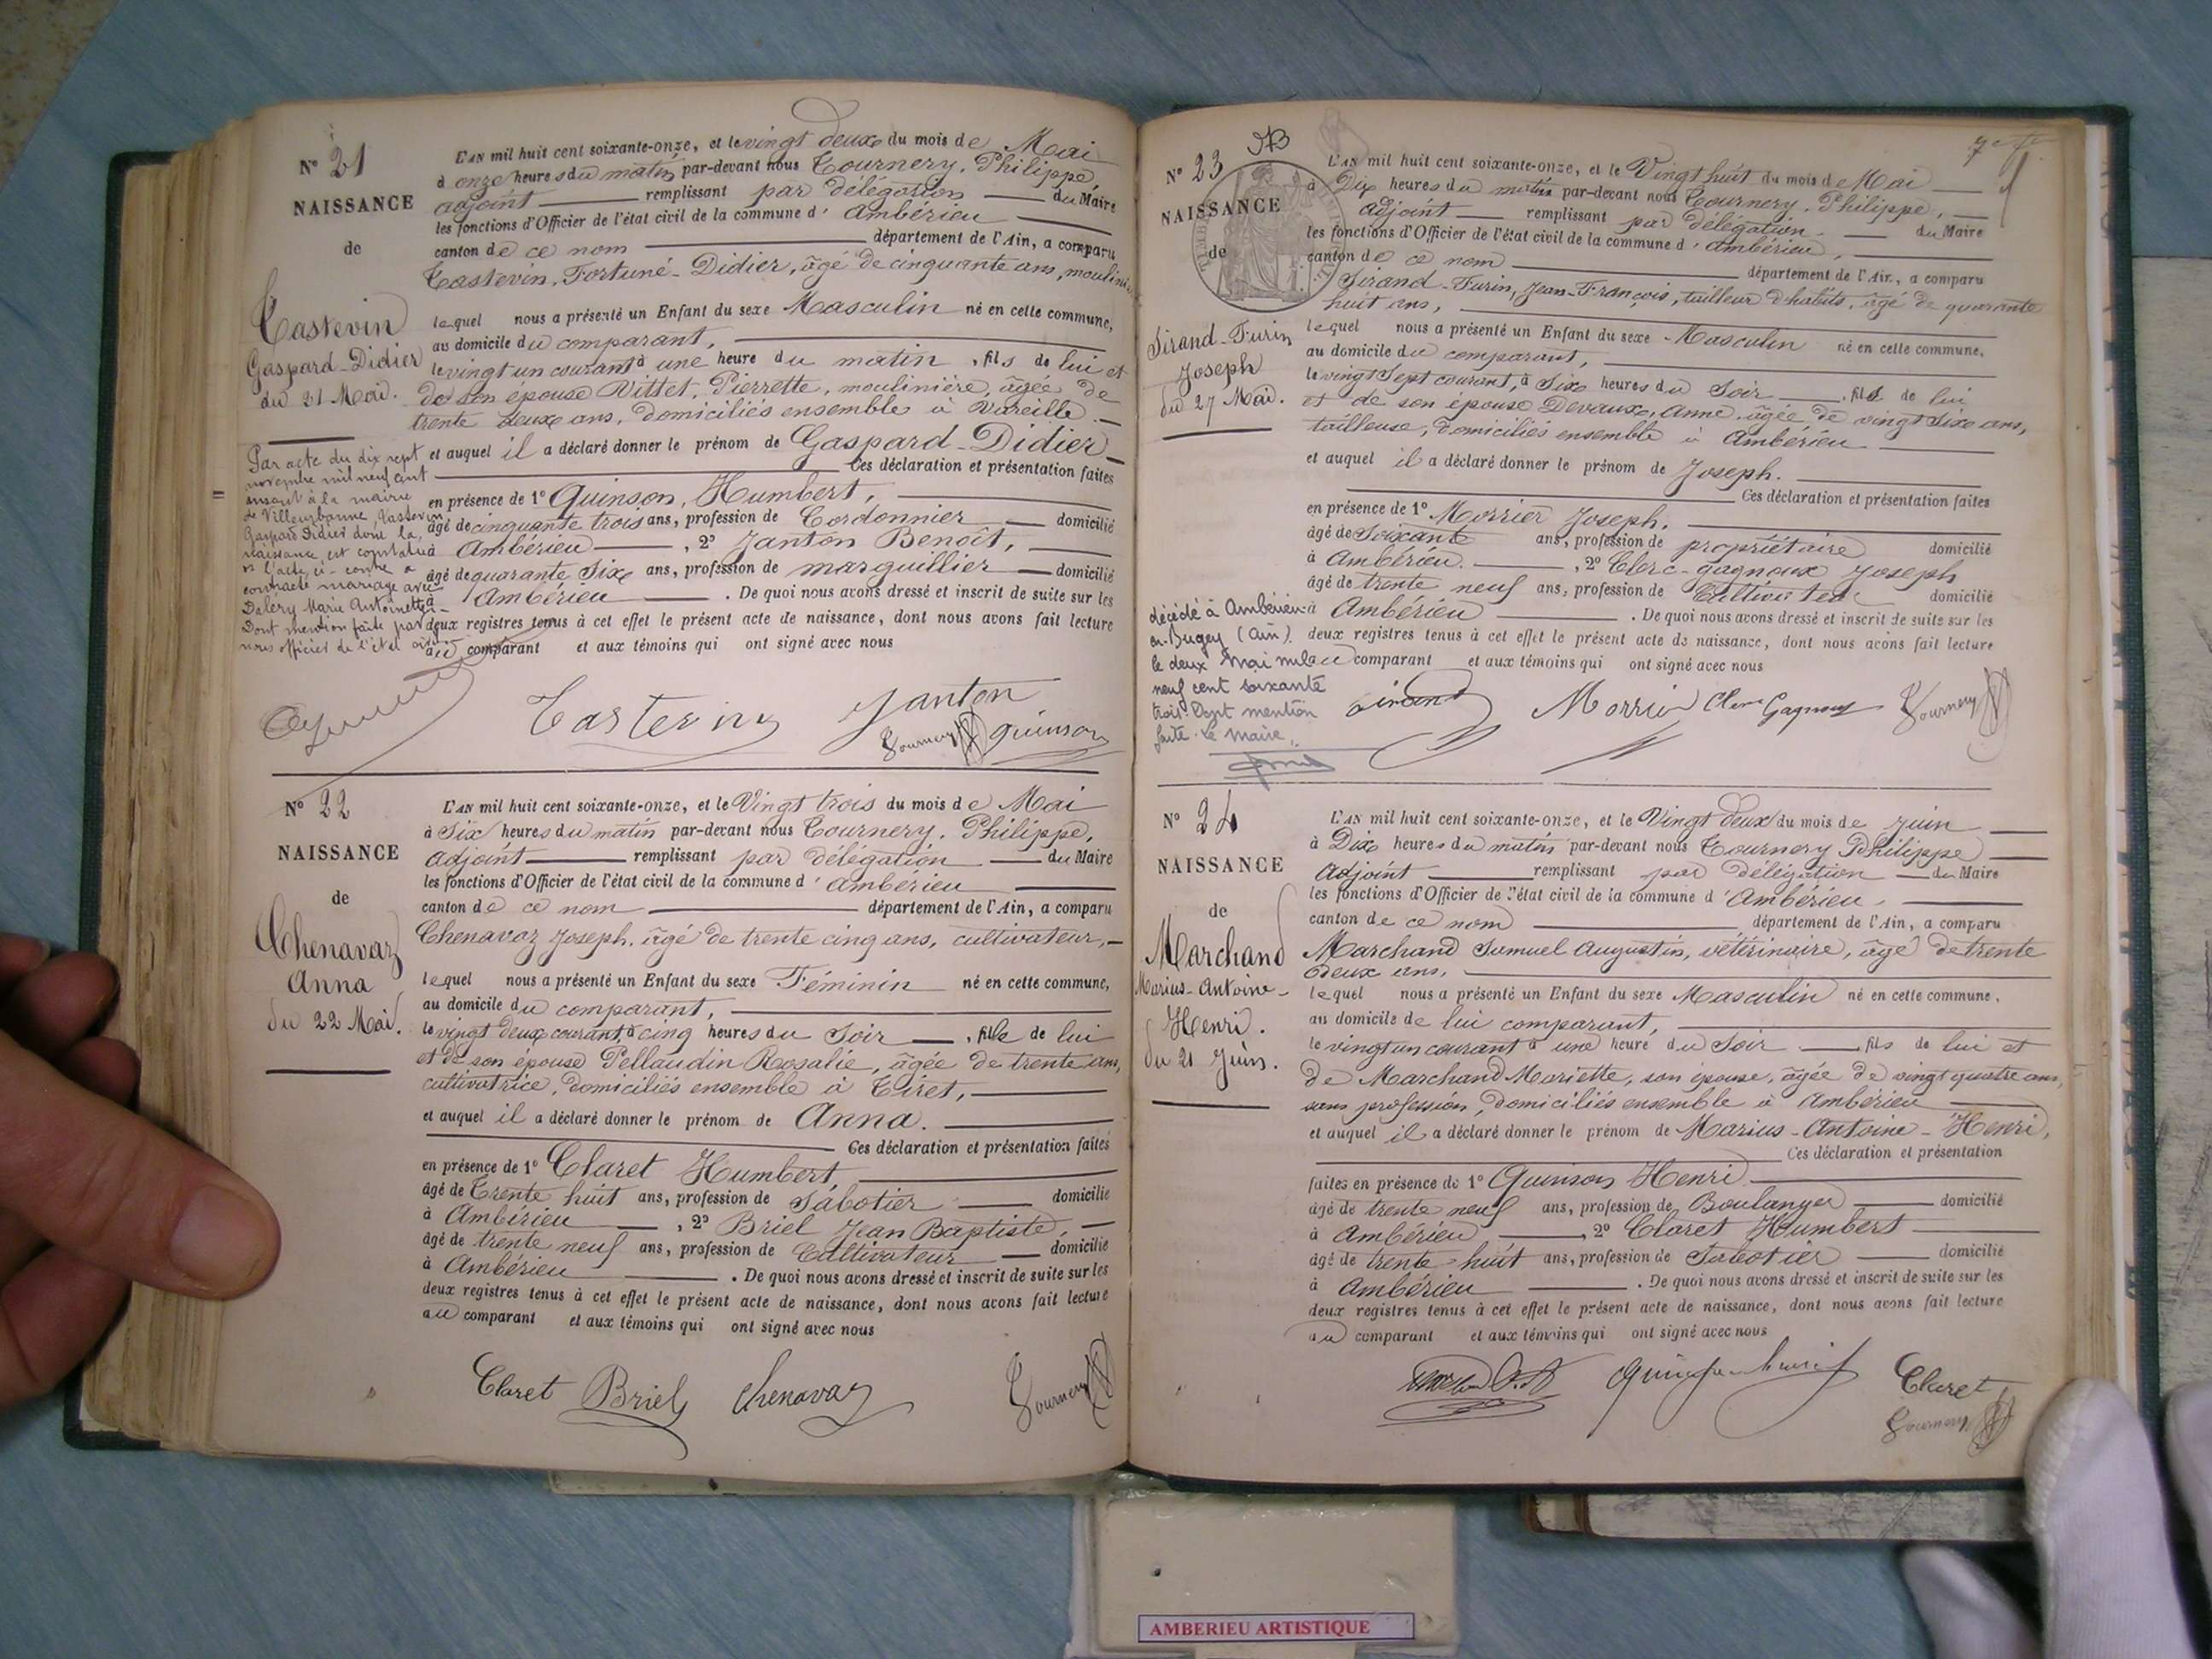 N° 21
NAISSANCE
de
Castevin
Gaspard-Didier
du 21 Mai.
Par acte du dix sept
novembre mil neuf cent
à la mairie
de Villeurbanne, Castevin
Gaspard Didier dont la
naissance est constatée
en l'acte ci-contre a
contracté mariage avec
Daléry Marie Antoinette
Dont mention faite par
nous officier de l'état civil
L'AN mil huit cent soixante-onze, et le vingt deux du mois de Mai
à onze heures du matin par-devant nous Tournery, Philippe,
adjoint remplissant par délégation du Maire
les fonctions d'Officier de l'état civil de la commune d'Ambérieu
canton de ce nom département de l'Ain, a comparu
Castevin, Fortuné-Didier, âgé de cinquante ans, moulinier
lequel nous a présenté un Enfant du sexe Masculin né en cette commune,
au domicile du comparant,
le vingt un courant à une heure du matin, fils de lui et
de son épouse Vittet, Pierrette, moulinière, âgée de
trente deux ans, domiciliés ensemble à Vareille
et auquel il a déclaré donner le prénom de Gaspard-Didier
Ces déclaration et présentation faites
en présence de 1° Quinson, Humbert,
âgé de cinquante trois ans, profession de Cordonnier domicilié
à Ambérieu, 2° Janton Benoît,
âgé de quarante six ans, profession de marguillier domicilié
à Ambérieu. De quoi nous avons dressé et inscrit de suite sur les
deux registres tenus à cet effet le présent acte de naissance, dont nous avons fait lecture
au comparant et aux témoins qui ont signé avec nous
Castevin Janton
Tournery Quinson
N° 22
NAISSANCE
de
Chenavaz
Anna
du 22 Mai.
L'AN mil huit cent soixante-onze, et le Vingt trois du mois de Mai
à Six heures du matin par-devant nous Tournery, Philippe,
adjoint remplissant par délégation du Maire
les fonctions d'Officier de l'état civil de la commune d'Ambérieu
canton de ce nom département de l'Ain, a comparu
Chenavaz Joseph, âgé de trente cinq ans, cultivateur,
lequel nous a présenté un Enfant du sexe Féminin né en cette commune,
au domicile du comparant,
le vingt deux courant, à cinq heures du Soir, fille de lui
et de son épouse Pellaudin Rosalie, âgée de trente ans,
cultivatrice, domiciliés ensemble à Tiret,
et auquel il a déclaré donner le prénom de Anna.
Ces déclaration et présentation faites
en présence de 1° Claret Humbert,
âgé de Trente huit ans, profession de Sabotier domicilié
à Ambérieu, 2° Briel Jean Baptiste,
âgé de trente neuf ans, profession de Cultivateur domicilié
à Ambérieu. De quoi nous avons dressé et inscrit de suite sur les
deux registres tenus à cet effet le présent acte de naissance, dont nous avons fait lecture
au comparant et aux témoins qui ont signé avec nous
Claret Briel Chenavaz Tournery
N° 23
NAISSANCE
de
Sirand-Furin
Joseph
du 27 Mai.
décédé à Ambérieu
en-Bugey (Ain)
le deux Mai mil
neuf cent soixante
trois. Dont mention
faite. Le Maire,
L'AN mil huit cent soixante-onze, et le Vingt huit du mois de Mai
à Dix heures du matin par-devant nous Tournery, Philippe,
adjoint remplissant par délégation du Maire
les fonctions d'Officier de l'état civil de la commune d'Ambérieu,
canton de ce nom département de l'Ain, a comparu
Sirand-Furin, Jean-François, tailleur d'habits, âgé de quarante
huit ans,
lequel nous a présenté un Enfant du sexe Masculin né en cette commune,
au domicile du comparant,
le vingt Sept courant, à Six heures du Soir, fils de lui
et de son épouse Devaux, Anne, âgée de vingt Six ans,
tailleuse, domiciliés ensemble à Ambérieu
et auquel il a déclaré donner le prénom de Joseph.
Ces déclaration et présentation faites
en présence de 1° Morrier Joseph.
âgé de Soixante ans, profession de propriétaire domicilié
à Ambérieu., 2° Clerc-gagnoux Joseph
âgé de trente neuf ans, profession de Cultivateur domicilié
à Ambérieu. De quoi nous avons dressé et inscrit de suite sur les
deux registres tenus à cet effet le présent acte de naissance, dont nous avons fait lecture
au comparant et aux témoins qui ont signé avec nous
Sirand Morrier Clerc Gagnoux Tournery
N° 24
NAISSANCE
de
Marchand
Marius-Antoine-
Henri.
du 21 Juin.
L'AN mil huit cent soixante-onze, et le Vingt deux du mois de Juin
à Dix heures du matin par-devant nous Tournery Philippe
adjoint remplissant par délégation du Maire
les fonctions d'Officier de l'état civil de la commune d'Ambérieu,
canton de ce nom département de l'Ain, a comparu
Marchand Samuel Augustin, vétérinaire, âgé de trente
deux ans,
lequel nous a présenté un Enfant du sexe Masculin né en cette commune,
au domicile de lui comparant,
le vingt un courant à une heure du Soir fils de lui et
de Marchand Mariette, son épouse, âgée de vingt quatre ans,
sans profession, domiciliés ensemble à Ambérieu
et auquel il a déclaré donner le prénom de Marius-Antoine-Henri,
Ces déclaration et présentation
faites en présence de 1° Quinson Henri
âgé de trente neuf ans, profession de Boulanger domicilié
à Ambérieu, 2° Claret Humbert
âgé de trente-huit ans, profession de Sabotier domicilié
à Ambérieu. De quoi nous avons dressé et inscrit de suite sur les
deux registres tenus à cet effet le présent acte de naissance, dont nous avons fait lecture
au comparant et aux témoins qui ont signé avec nous
Quinson henri Claret
Tournery
AMBERIEU ARTISTIQUE